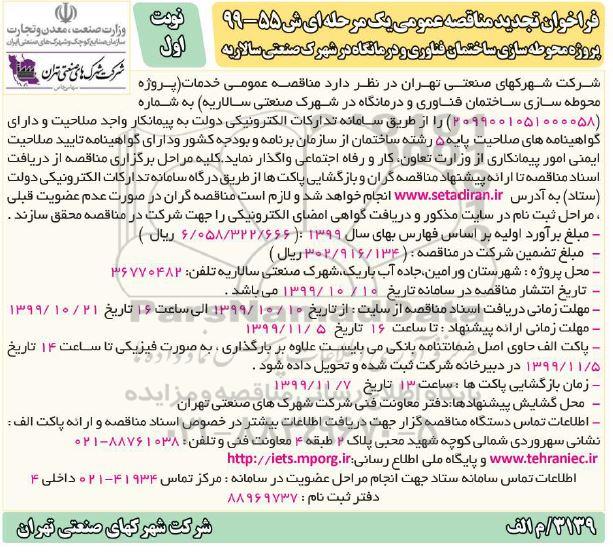 فراخوان تجدید مناقصه عمومی یک مرحله ای ش ۵۵-۹۹
پروژه محوطه سازی ساختمان فناوری و درمانگاه در شهرک صنعتی سالاریه
نوبت اول
وزارت صنعت، معدن و تجارت
سازمان صنایع کوچک و شهرک های صنعتی ایران
شرکت شهرک های صنعتی تهران
شرکت شهرکهای صنعتی تهران در نظر دارد مناقصه عمومی خدمات(پروژه
محوطه سازی ساختمان فناوری و درمانگاه در شهرک صنعتی سالاریه) به شماره
(۲۰۹۹۰۰۱۰۵۱۰۰۰۰۵۸) را از طریق سامانه تدارکات الکترونیکی دولت به پیمانکار واجد صلاحیت و دارای
گواهینامه های صلاحیت پایه ۵ رشته ساختمان از سازمان برنامه و بودجه کشور ودارای گواهینامه تایید صلاحیت
ایمنی امور پیمانکاری از وزارت تعاون، کار و رفاه اجتماعی واگذار نماید.کلیه مراحل برگزاری مناقصه از دریافت
اسناد مناقصه تا ارائه پیشنهاد مناقصه گران و بازگشایی پاکت ها از طریق درگاه سامانه تدارکات الکترونیکی دولت
(ستاد) به آدرس www.setadiran.ir انجام خواهد شد و لازم است مناقصه گران در صورت عدم عضویت قبلی
، مراحل ثبت نام در سایت مذکور و دریافت گواهی امضای الکترونیکی را جهت شرکت در مناقصه محقق سازند .
- مبلغ برآورد اولیه بر اساس فهارس بهای سال ۱۳۹۹ :( ۶/۰۵۸/۳۲۲/۶۶۶ ریال )
- مبلغ تضمین شرکت در مناقصه : ( ۳۰۲/۹۱۶/۱۳۴ ریال )
- محل پروژه : شهرستان ورامین،جاده آب باریک،شهرک صنعتی سالاریه تلفن: ۳۶۷۷۰۴۸۲
- تاریخ انتشار مناقصه در سامانه تاریخ ۱۰/ ۱۰/ ۱۳۹۹ می باشد .
- مهلت زمانی دریافت اسناد مناقصه از سایت : از تاریخ ۱۰/ ۱۰/ ۱۳۹۹ الی ساعت ۱۶ تاریخ ۲۱ / ۱۰ / ۱۳۹۹
- مهلت زمانی ارائه پیشنهاد : تا ساعت ۱۶ تاریخ ۵ /۱۳۹۹/۱۱
- پاکت الف حاوی اصل ضمانتنامه بانکی می بایست علاوه بر بارگذاری ، به صورت فیزیکی تا ساعت ۱۴ تاریخ
۱۳۹۹/۱۱/۵ در دبیرخانه شرکت ثبت شده و تحویل داده شود .
- زمان بازگشایی پاکت ها : ساعت ۱۳ تاریخ ۱۳۹۹/۱۱/۷
- محل گشایش پیشنهادها: دفتر معاونت فنی شرکت شهرک های صنعتی تهران
- اطلاعات تماس دستگاه مناقصه گزار جهت دریافت اطلاعات بیشتر در خصوص اسناد مناقصه و ارائه پاکت الف :
نشانی سهروردی شمالی کوچه شهید محبی پلاک ۲ طبقه ۴ معاونت فنی و تلفن : ۸۸۷۶۱۰۳۸-۰۲۱
www.tehraniec.ir و پایگاه ملی اطلاع رسانی: http://iets.mporg.ir
اطلاعات تماس سامانه ستاد جهت انجام مراحل عضویت در سامانه : مرکز تماس ۴۱۹۳۴-۰۲۱ داخلی ۴
دفتر ثبت نام : ۸۸۹۶۹۷۳۷
۳۱۳۹/م الف
شرکت شهرکهای صنعتی تهران